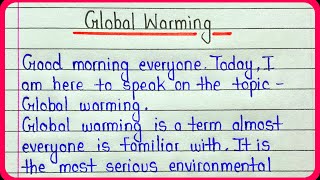 Global Warming
Good morning everyone. Today, I
am here to speak on the topic -
Global warming.
Global warming is a term almost
everyone is familiar with. It is
the most serious environmental